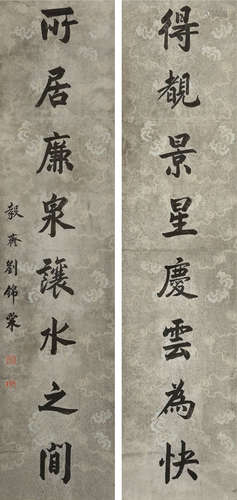 得覩景星慶雲為快
所居廉泉讓水之間
毅齋劉錦棠